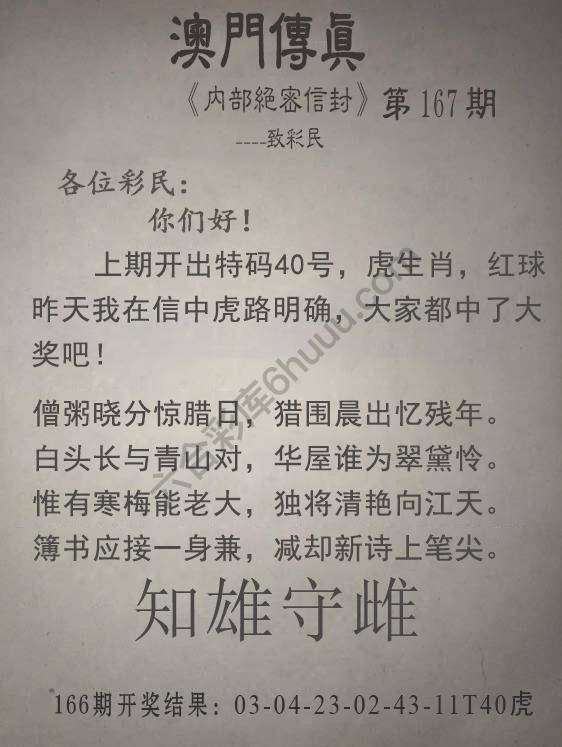 澳門傳真
《内部絕密信封》第167期
----致彩民
各位彩民：
你们好！
上期开出特码40号，虎生肖，红球
昨天我在信中虎路明确，大家都中了大
奖吧！
僧粥晓分惊腊日，猎围晨出忆残年。
白头长与青山对，华屋谁为翠黛怜。
惟有寒梅能老大，独将清艳向江天。
簿书应接一身兼，减却新诗上笔尖。
知雄守雌
166期开奖结果：03-04-23-02-43-11T40虎
六合彩库6huuu.com